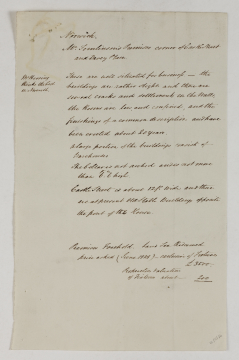 Norwich.
Mr. Tomlinson's Premises corner of Castle Street
and Davey Place
These are well situated for business — the
buildings are rather slight and there are
several cracks and settlements in the Walls,
the Rooms are low and confined, and the
finishings of a common description and have
been erected about 20 years
a large portion of the buildings consist of
Warehouses
The Cellars is not arched and is not more
than
Castle Street is about 12 ft wide, and there
are at present Buildings opposite
the front of the House.
Premises Freehold, have Tax Redeemed
Price asked (June 1828) exclusive of Fixtures
£3500
valuation
of Fixtures about 200